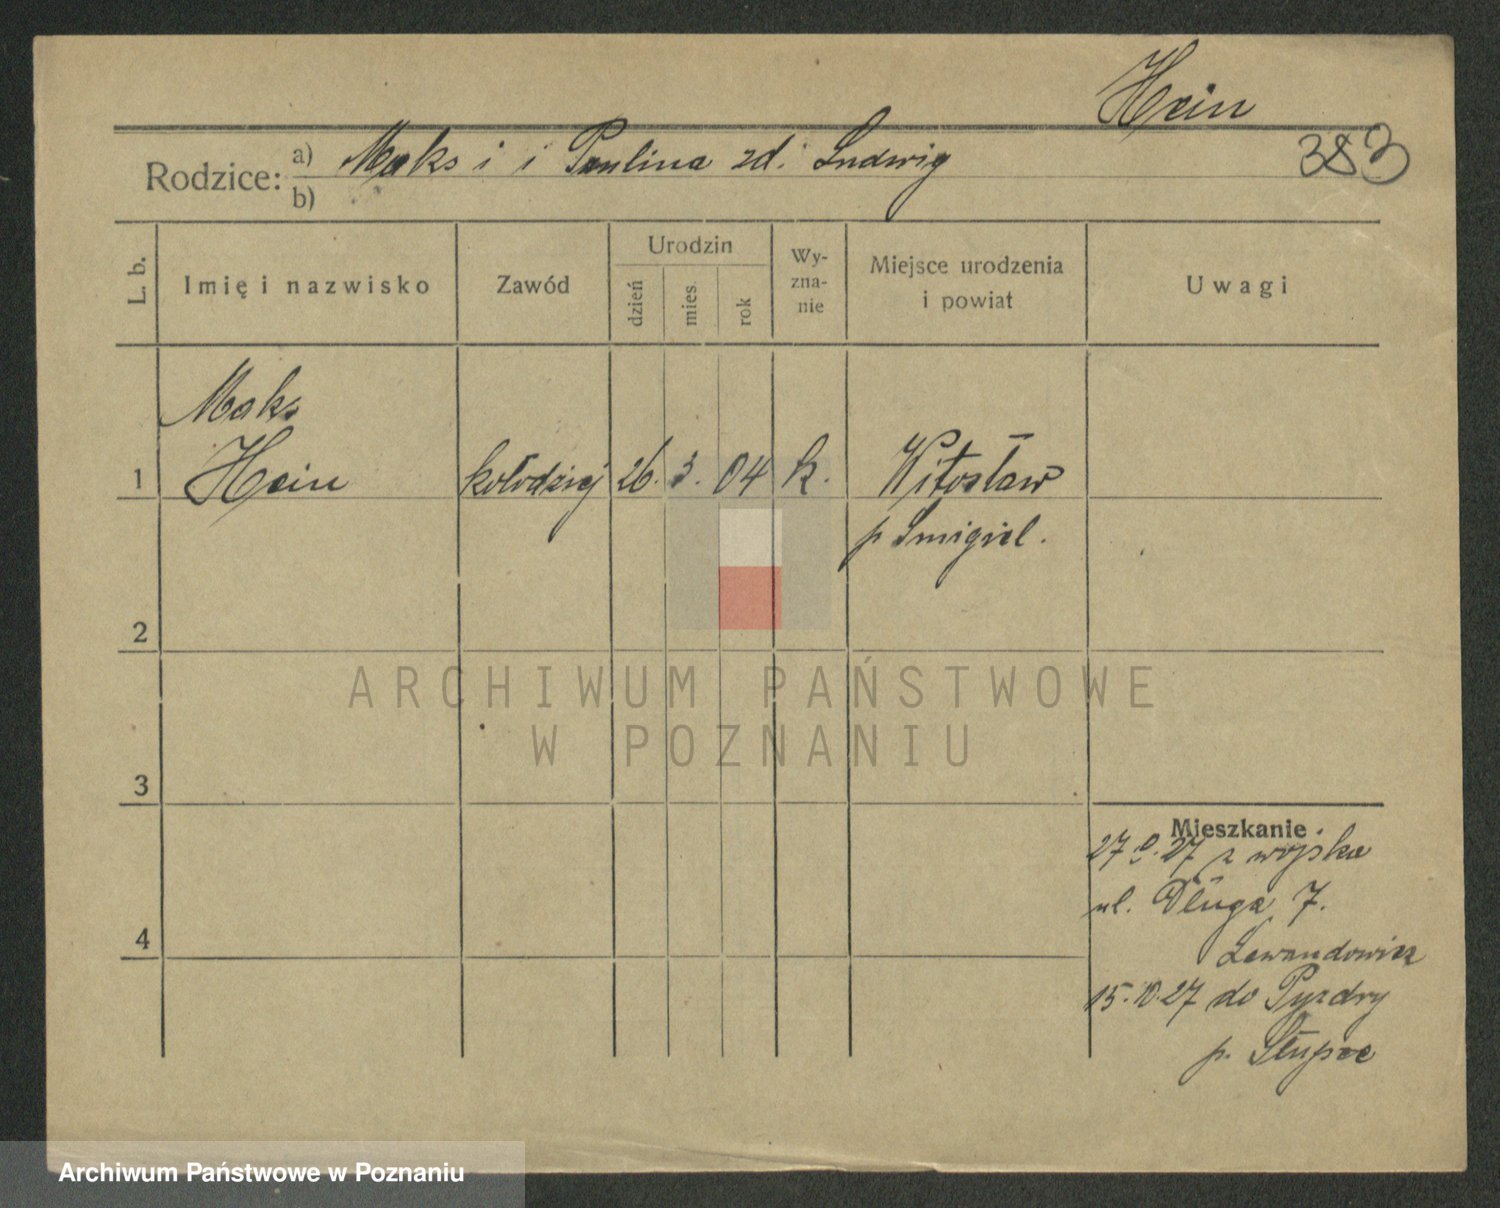 Hein
383
Rodzice: a) Maks i i Paulina zd. Ludwig
b)
L. b.
Imię i nazwisko
Zawód
Urodzin
dzień
mies.
rok
Wy-
zna-
nie
Miejsce urodzenia
i powiat
Uwagi
Maks
1 Hein kołodziej 26. 3. 04 k. Witosław
p Smigiel.
2
3
4
Mieszkanie
27 9. 27 z wojska
ul. Długa 7.
Lewandowicz
15. 10. 27 do Pyzdry
p. Słupce
ARCHIWUM PAŃSTWOWE
W POZNANIU
Archiwum Państwowe w Poznaniu